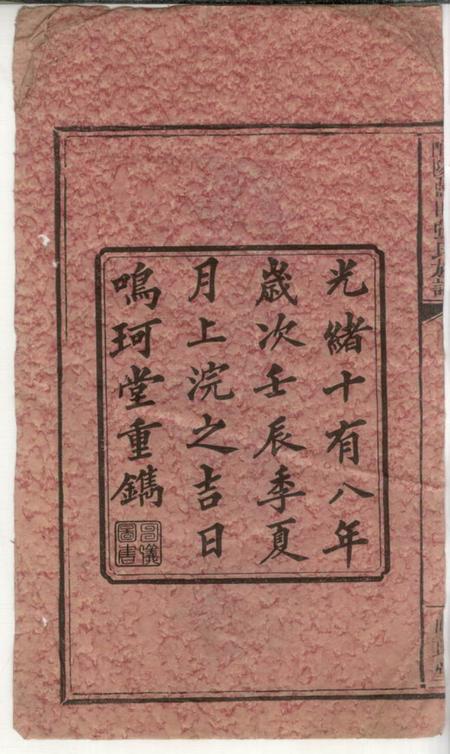 光緒十有八年
歲次壬辰季夏
月上浣之吉日
鳴珂堂重鐫
圖書